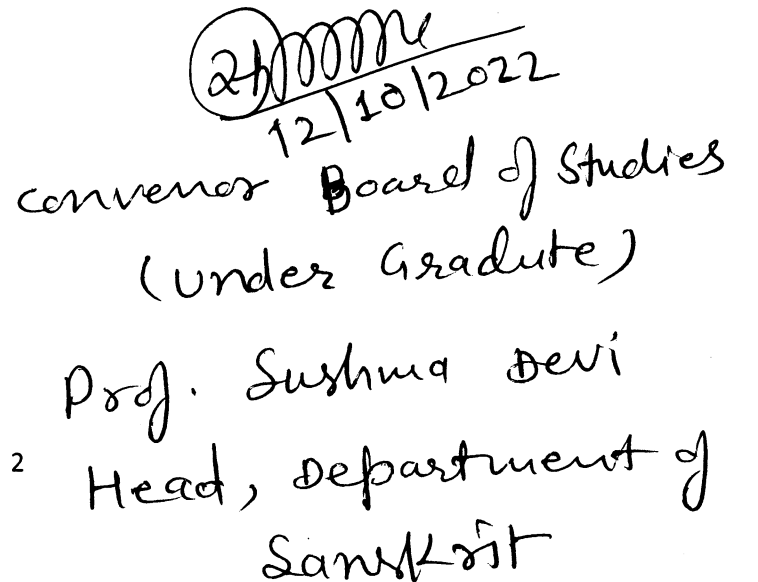 12/10/2022
convenor Board of Studies
(under Gradute)
Prof. Sushma Devi
2
Head, Department of
Sanskrit